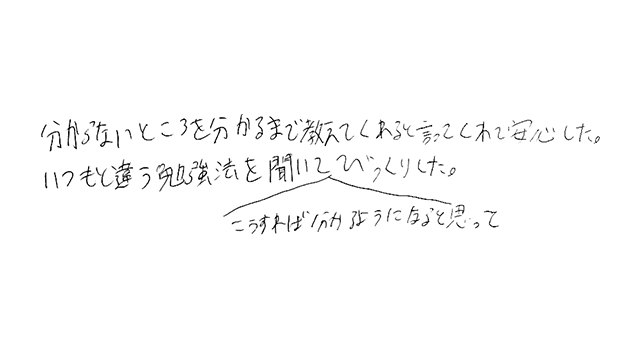 分からないところを分かるまで教えてくれると言ってくれて安心した。
いつもと違う勉強法を聞いてびっくりした。
こうすれば分かるようになると思って